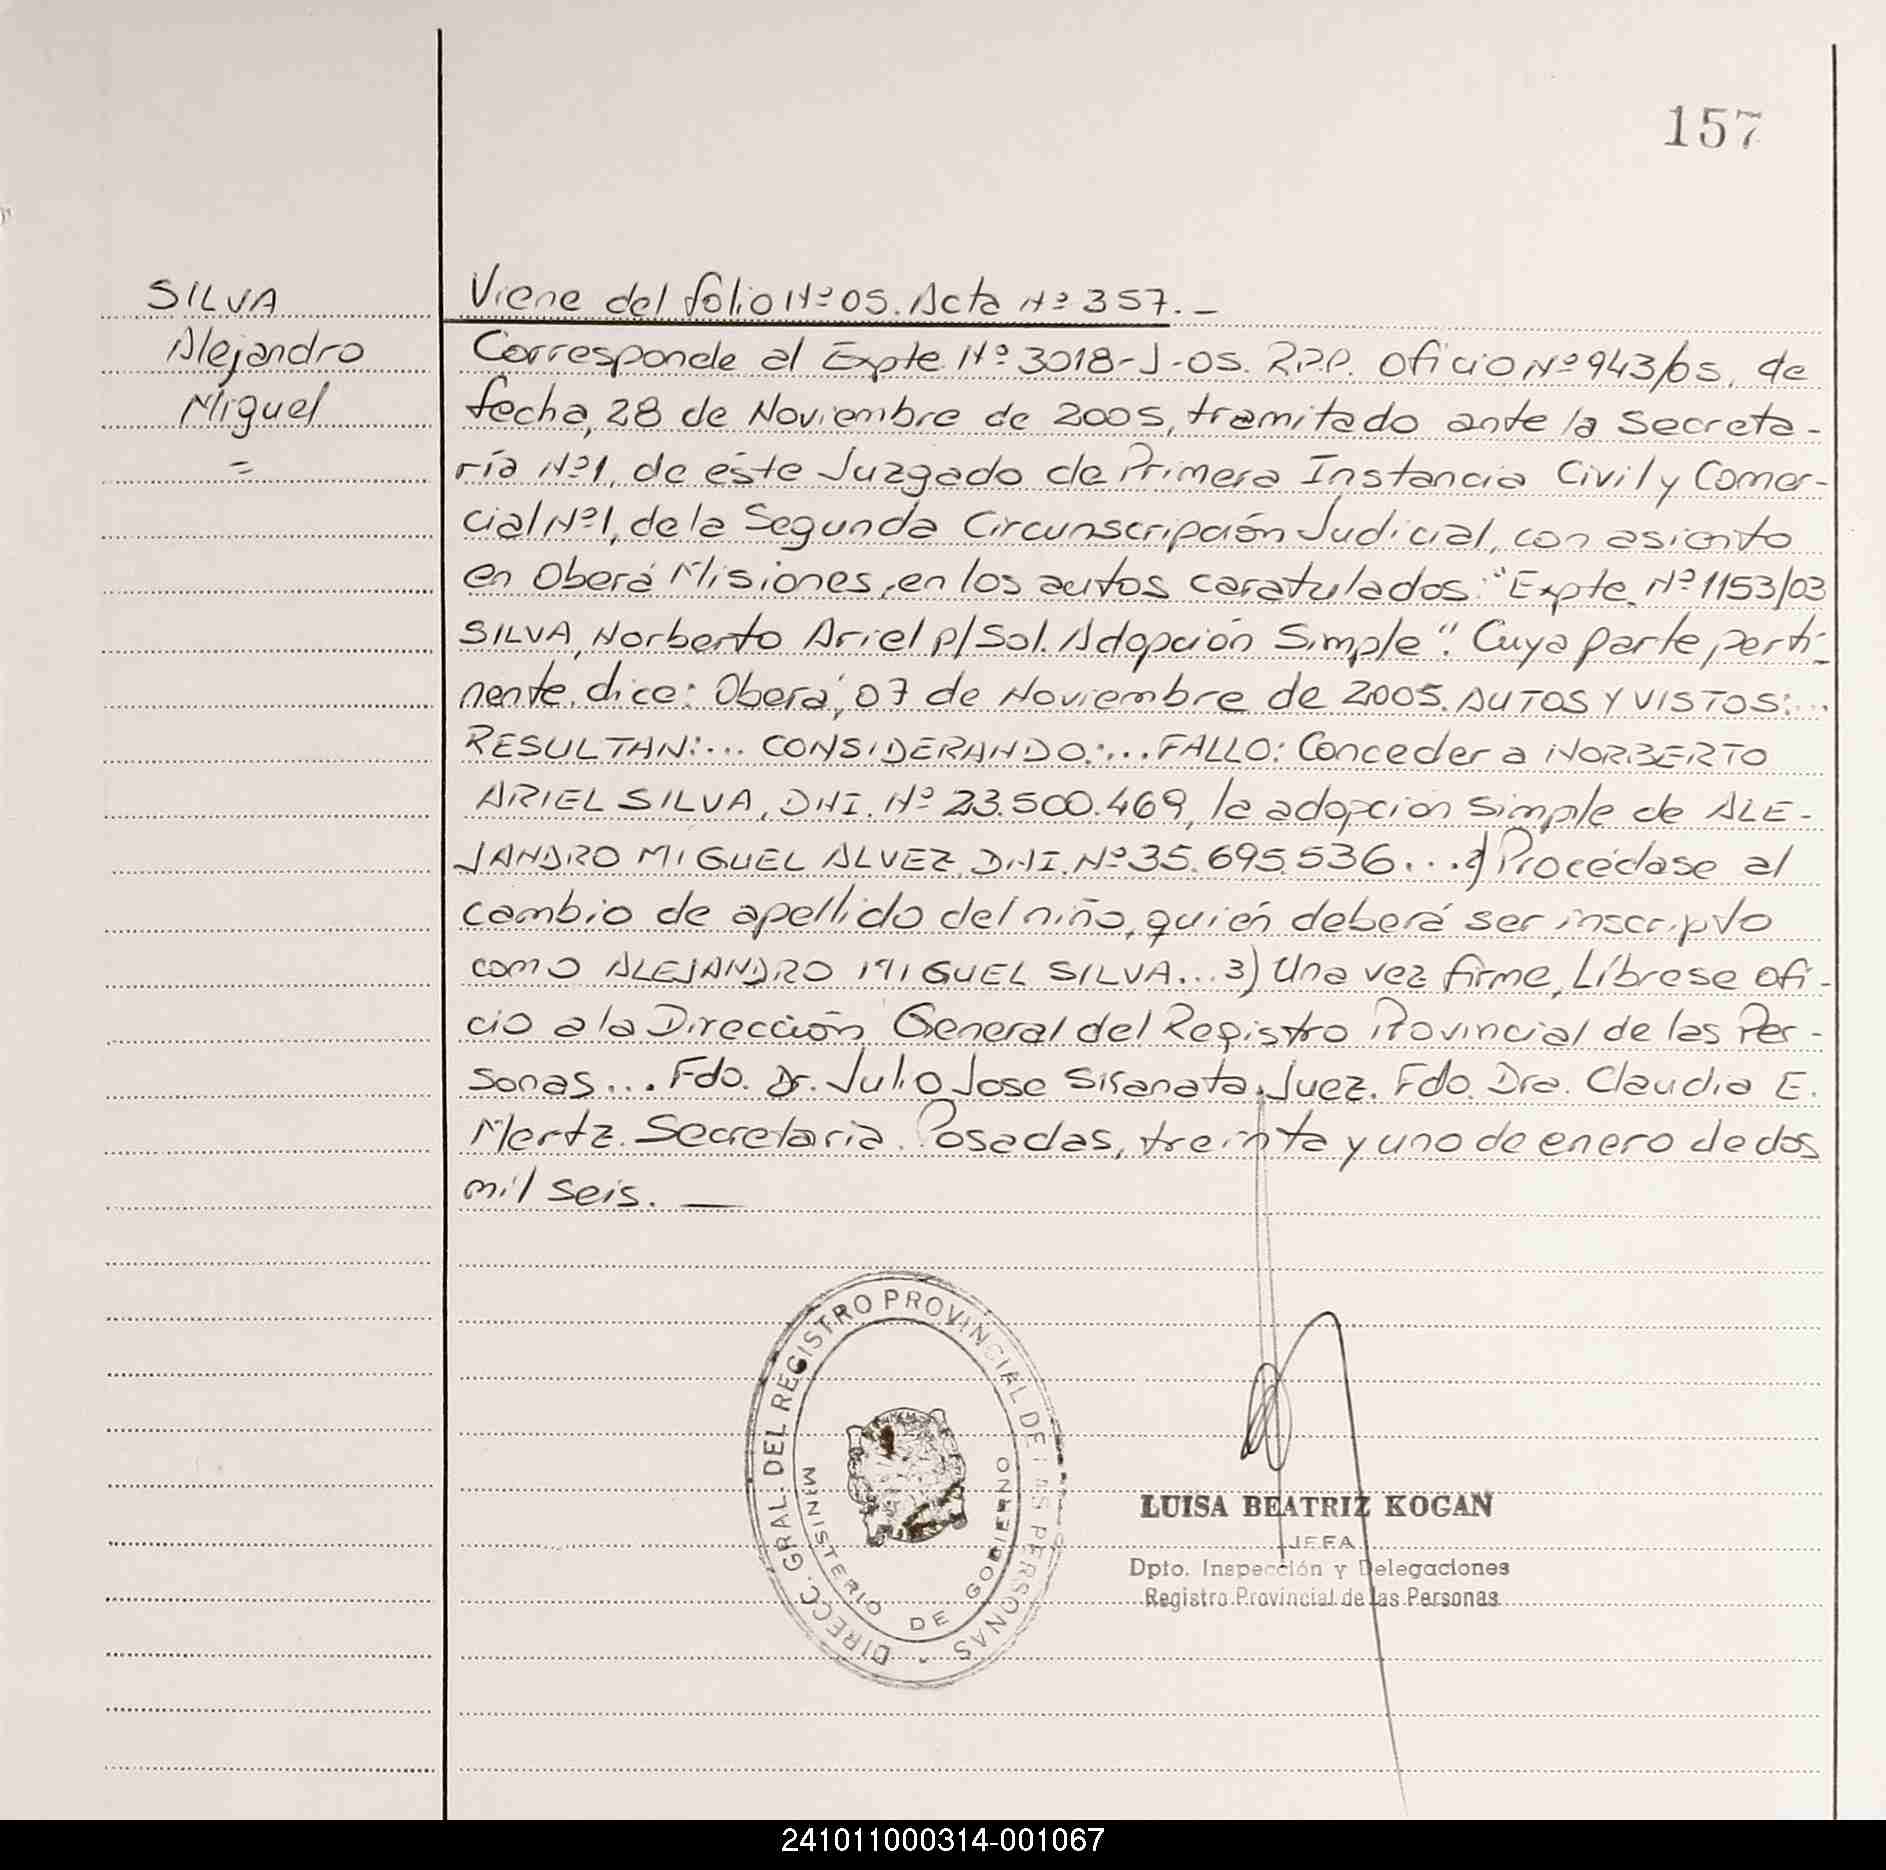 157
SILVA
Alejandro
Miguel
=
Viene del folio Nº 05. Acta Nº 357. _
Corresponde al Expte. Nº 3018-J-05. R.P.P. Oficio Nº 943/05, de
fecha, 28 de Noviembre de 2005, tramitado ante la Secreta-
ría Nº 1, de éste Juzgado de Primera Instancia Civil y Comer-
cial Nº 1, de la Segunda Circunscripción Judicial, con asiento
en Oberá Misiones, en los autos caratulados: "Expte. Nº 1153/03
SILVA, Norberto Ariel p/Sol. Adopción Simple". Cuya parte perti-
nente, dice: Oberá, 07 de Noviembre de 2005. AUTOS Y VISTOS:...
RESULTAN:... CONSIDERANDO:... FALLO: Conceder a NORBERTO
ARIEL SILVA, DNI. Nº 23.500.469, la adopción simple de ALE-
JANDRO MIGUEL ALVEZ, DNI. Nº 35.695.536... 2) Procédase al
cambio de apellido del niño, quién deberá ser inscripto
como ALEJANDRO MIGUEL SILVA... 3) Una vez firme, Líbrese ofi-
cio a la Dirección General del Registro Provincial de las Per-
sonas... Fdo. Dr. Julio Jose Sikanata, Juez. Fdo. Dra. Claudia E.
Mertz. Secretaria. Posadas, treinta y uno de enero de dos
mil seis. __
DIRECC. GRAL. DEL REGISTRO PROVINCIAL DE LAS PERSONAS
MINISTERIO DE GOBIERNO
LUISA BEATRIZ KOGAN
JEFA
Dpto. Inspección y Delegaciones
Registro Provincial de las Personas
241011000314-001067